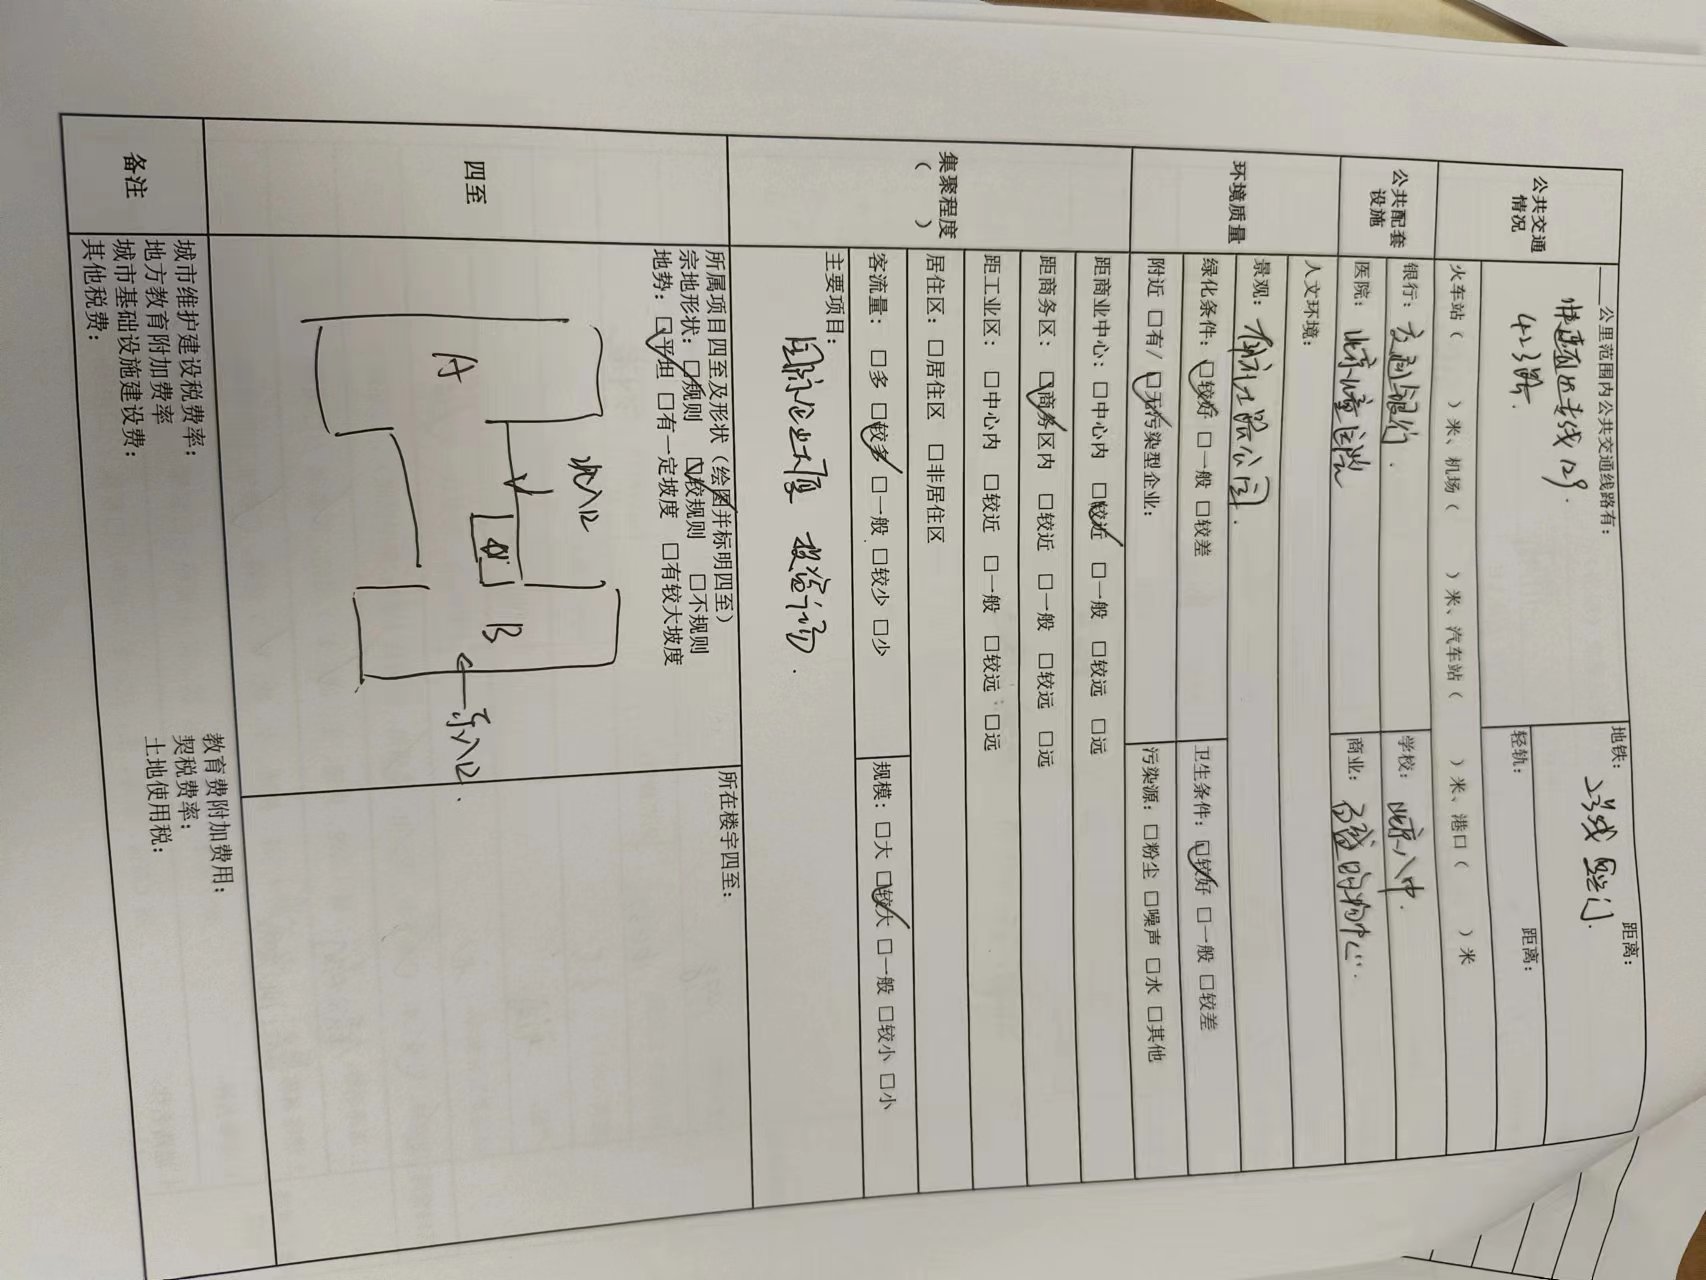 公共交通情况
___公里范围内公共交通线路有：
专线129.
423路.
地铁：
距离：
2号线
门.
轻轨：
距离：
火车站（ ）米、机场（ ）米、汽车站（ ）米、港口（ ）米
公共配套设施
银行：交通银行.
学校：北京八中.
医院：北京儿童医院
商业：购物中心.
环境质量
人文环境：
景观：公园.
绿化条件：□较好 □一般 □较差
卫生条件：□较好 □一般 □较差
附近 □有/ □无污染型企业：
污染源：□粉尘 □噪声 □水 □其他
集聚程度
（ ）
距商业中心：□中心内 □较近 □一般 □较远 □远
距商务区：□商务区内 □较近 □一般 □较远 □远
距工业区：□中心内 □较近 □一般 □较远 □远
居住区：□居住区 □非居住区
客流量：□多 □较多 □一般 □较少 □少
规模：□大 □较大 □一般 □较小 □小
主要项目：
国际企业大厦 投资广场.
四至
所属项目四至及形状（绘图并标明四至）
宗地形状：□规则 □较规则 □不规则
地势：□平坦 □有一定坡度 □有较大坡度
所在楼宇四至：
北入口
A
B
东入口.
备注
城市维护建设税费率：
教育费附加费用：
地方教育附加费率
契税费率：
城市基础设施建设费：
土地使用税：
其他税费：